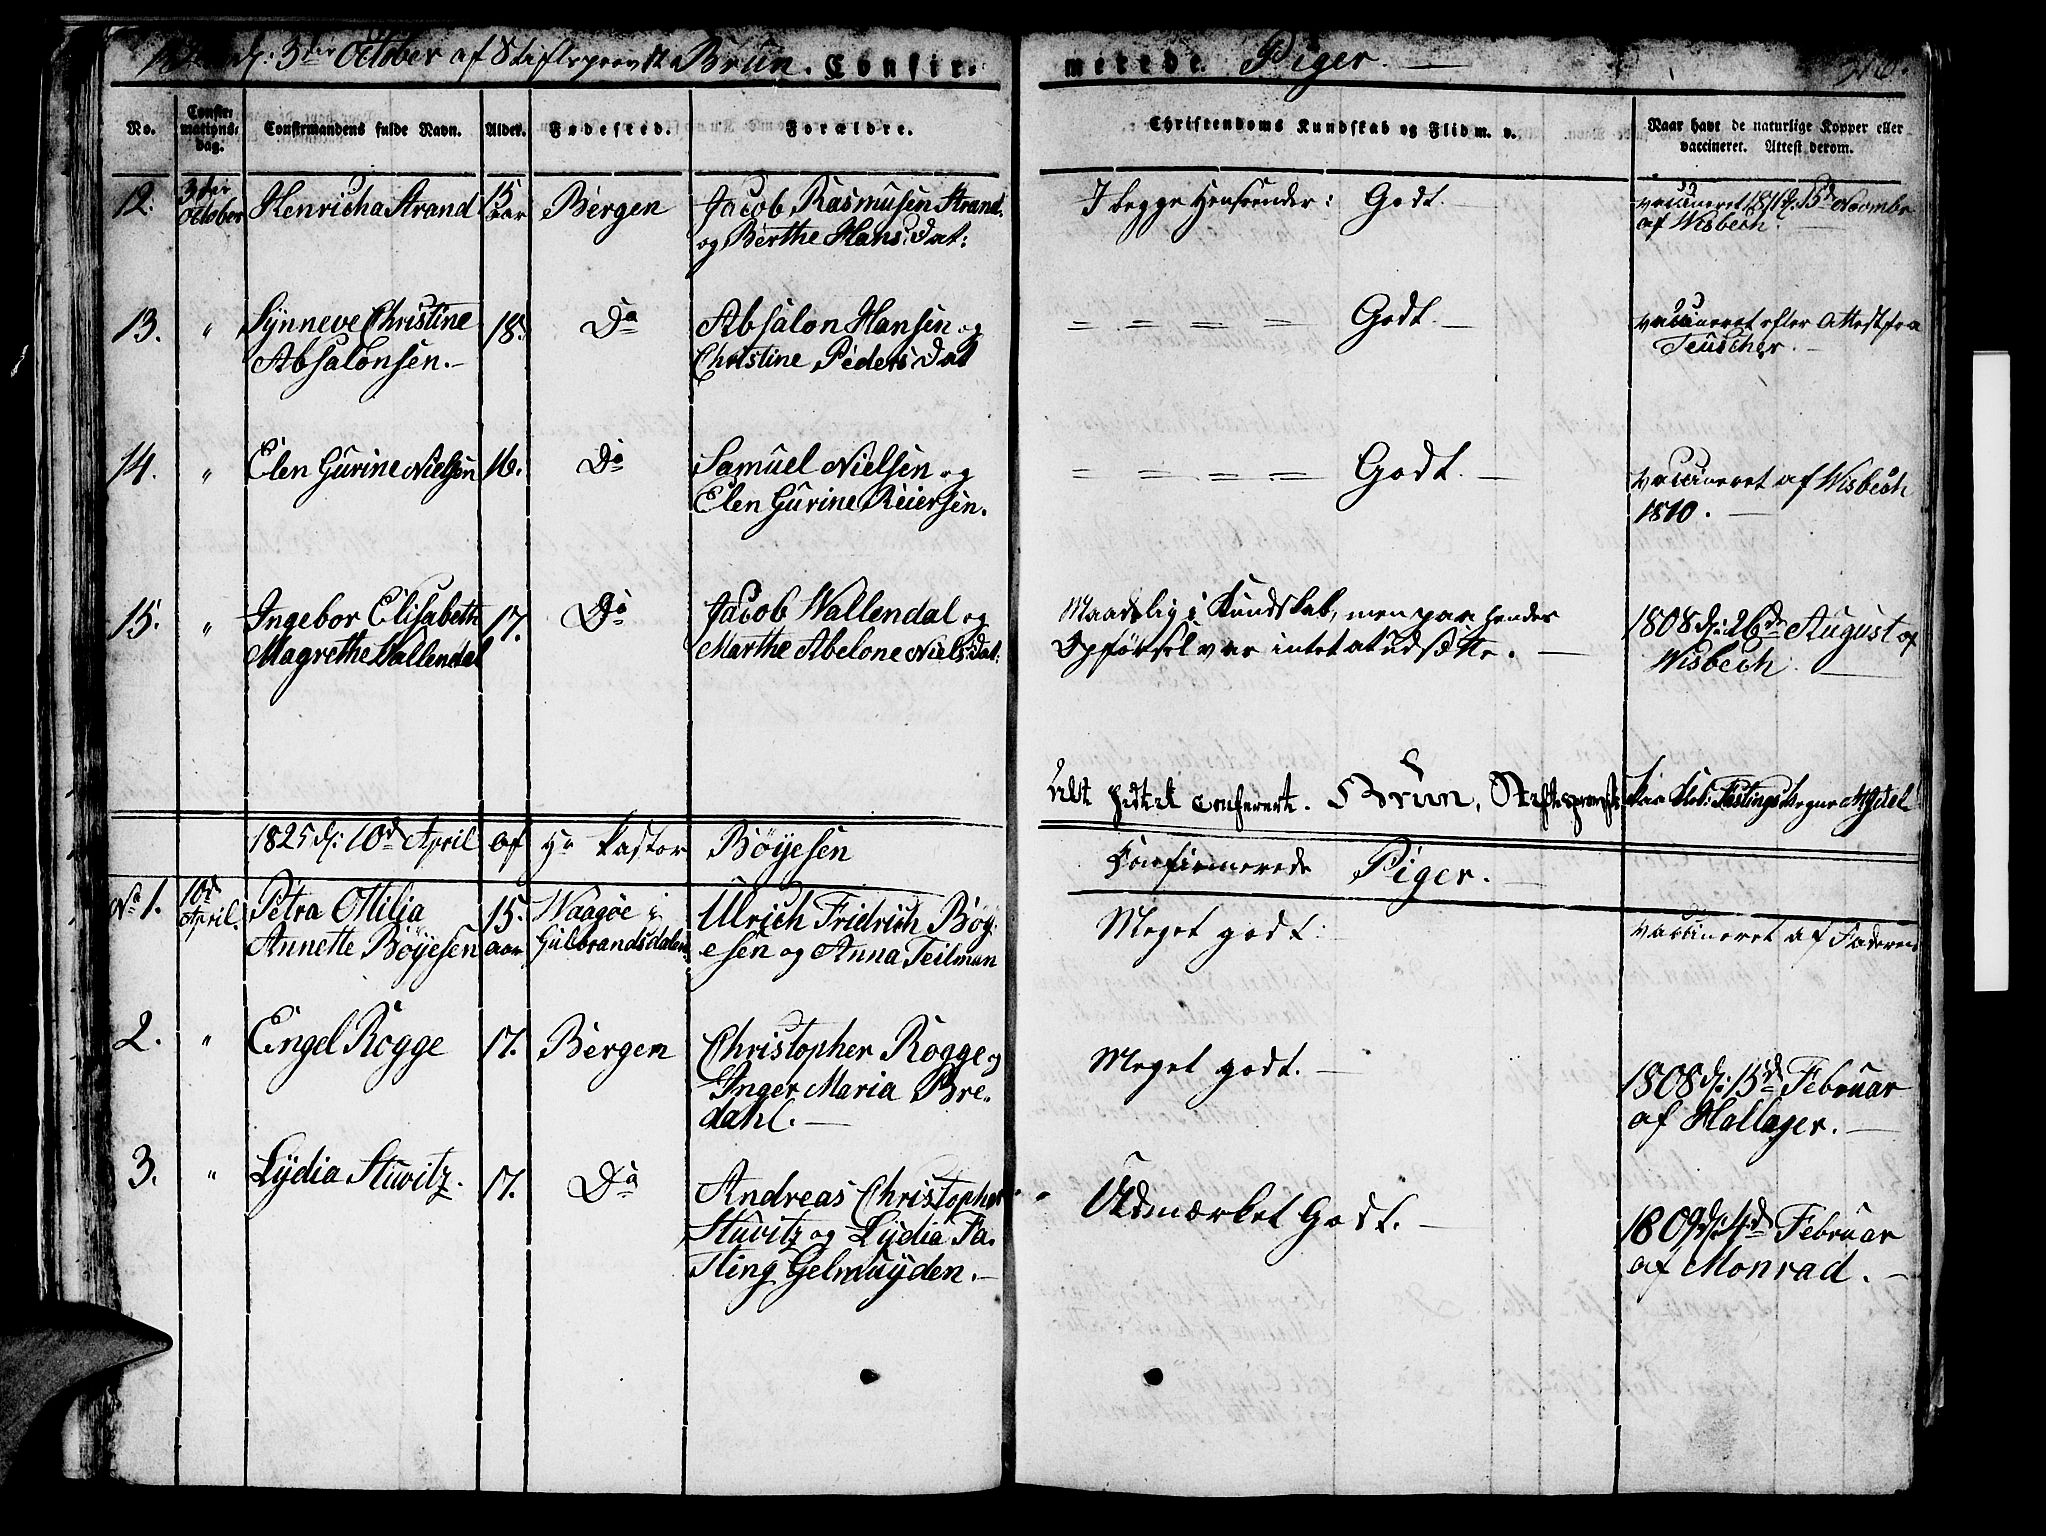 d: 3die October af Stiftsprovst Brun. Confir-
merede Piger. —
No.
Confir-
mations-
dag.
Confirmandens fulde Navn.
Alder.
Fødested.
Forældre.
Christendoms Kundskab og Flid m. v.
Naar havt de naturlige Kopper eller
vaccineret. Attest derom.
12. 3die October Henricha Strand 15 aar Bergen Jacob Rasmusen Strand
og Berthe Hans Dat: I begge Henseender: Godt. vaccineret 1811 d: 5d Novembr
af Wisbech. —
13. " Synneve Christine
Absalonsen. — 18. Do Absalon Hansen og
Christine Peders Dat = = = = Godt. — vaccineret efter Attest fra
Teuscher. —
14. " Elen Gurine Nielsen 16. Do Samuel Nielsen og
Elen Gurine Reiersen. = = = = Godt. — vaccineret af Wisbech
1810. —
15. " Ingebor Elisabeth
Magrethe Wallendal 17. Do Jacob Wallendal og
Marthe Abelone Niels Dat: Maadelig i Kundskab, men paa hendes
Opførsel var intet at udsætte. — 1808 d: 26d August af
Wisbech. —
confererte. Brun, Stiftsprovst
1825 d: 10d April af Hr Pastor Bøyesen Confirmerede Piger. —
No 1. 10d April. Petra Otilia
Annette Bøyesen 15. aar Waagøe i
Gulbrandsdalen Ulrich Fridrich Bøy-
esen og Anna Teilman Meget godt. vaccineret af Faderen
2. " Engel Rogge 17. Bergen Christopher Rogge og
Inger Maria Bre-
dahl. — Meget godt. — 1808 d: 15d Februar
af Hallager. —
3. " Lydia Stuwitz. 17. Do Andreas Christopher
Stuwitz og Lydia Fa-
sting Gelmuyden. — Udmærket Godt. — 1809 d: 4d Februar
af Monrad. —